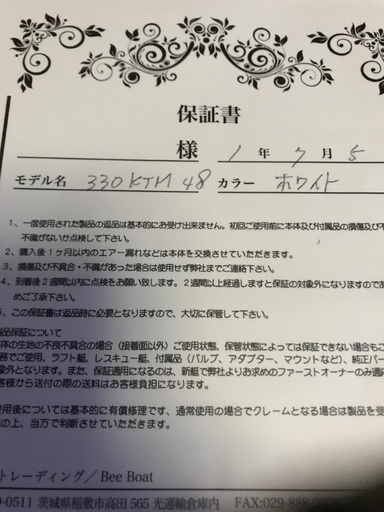 保証書
様 1年7月5
モデル名 330KTM48 カラー ホワイト
1、一度使用された製品の返品は基本的にお受け出来ません。初回ご使用前に本体及び付属品の損傷及び不
不備がないか点検して下さい。
2、購入後1ヶ月以内のエアー漏れなどは本体を交換させていただきます。
3、損傷及び不具合・不備があった場合は使用せず弊社までご連絡下さい。
4、到着後2週間以内に点検をお願い致します。2週間以上経過しますと保証の対象外になりますのであ
めご了承下さい。
、この保証書は返品時に必要となりますので、大切に保管して下さい。
品保証について
体の生地の不良不具合の場合（接着面以外）ご使用状態、保管状態によっては保証できない場合もご
務でご使用、ラフト艇、レスキュー艇、付属品（バルブ、アダプター、マウントなど）、純正パー
象外となります。また、保証適用になるのは、新艇で弊社よりお求めのファーストオーナーのみ適
客様から送付の際の送料はお客様負担になります。
使用後については基本的に有償修理です、通常使用の場合でクレームとなる場合は製品を受
の上、当方で判断させていただきます。
トレーディング／Bee Boat
0-0511 茨城県稲敷市高田565 光運輸倉庫内 FAX:029-888-